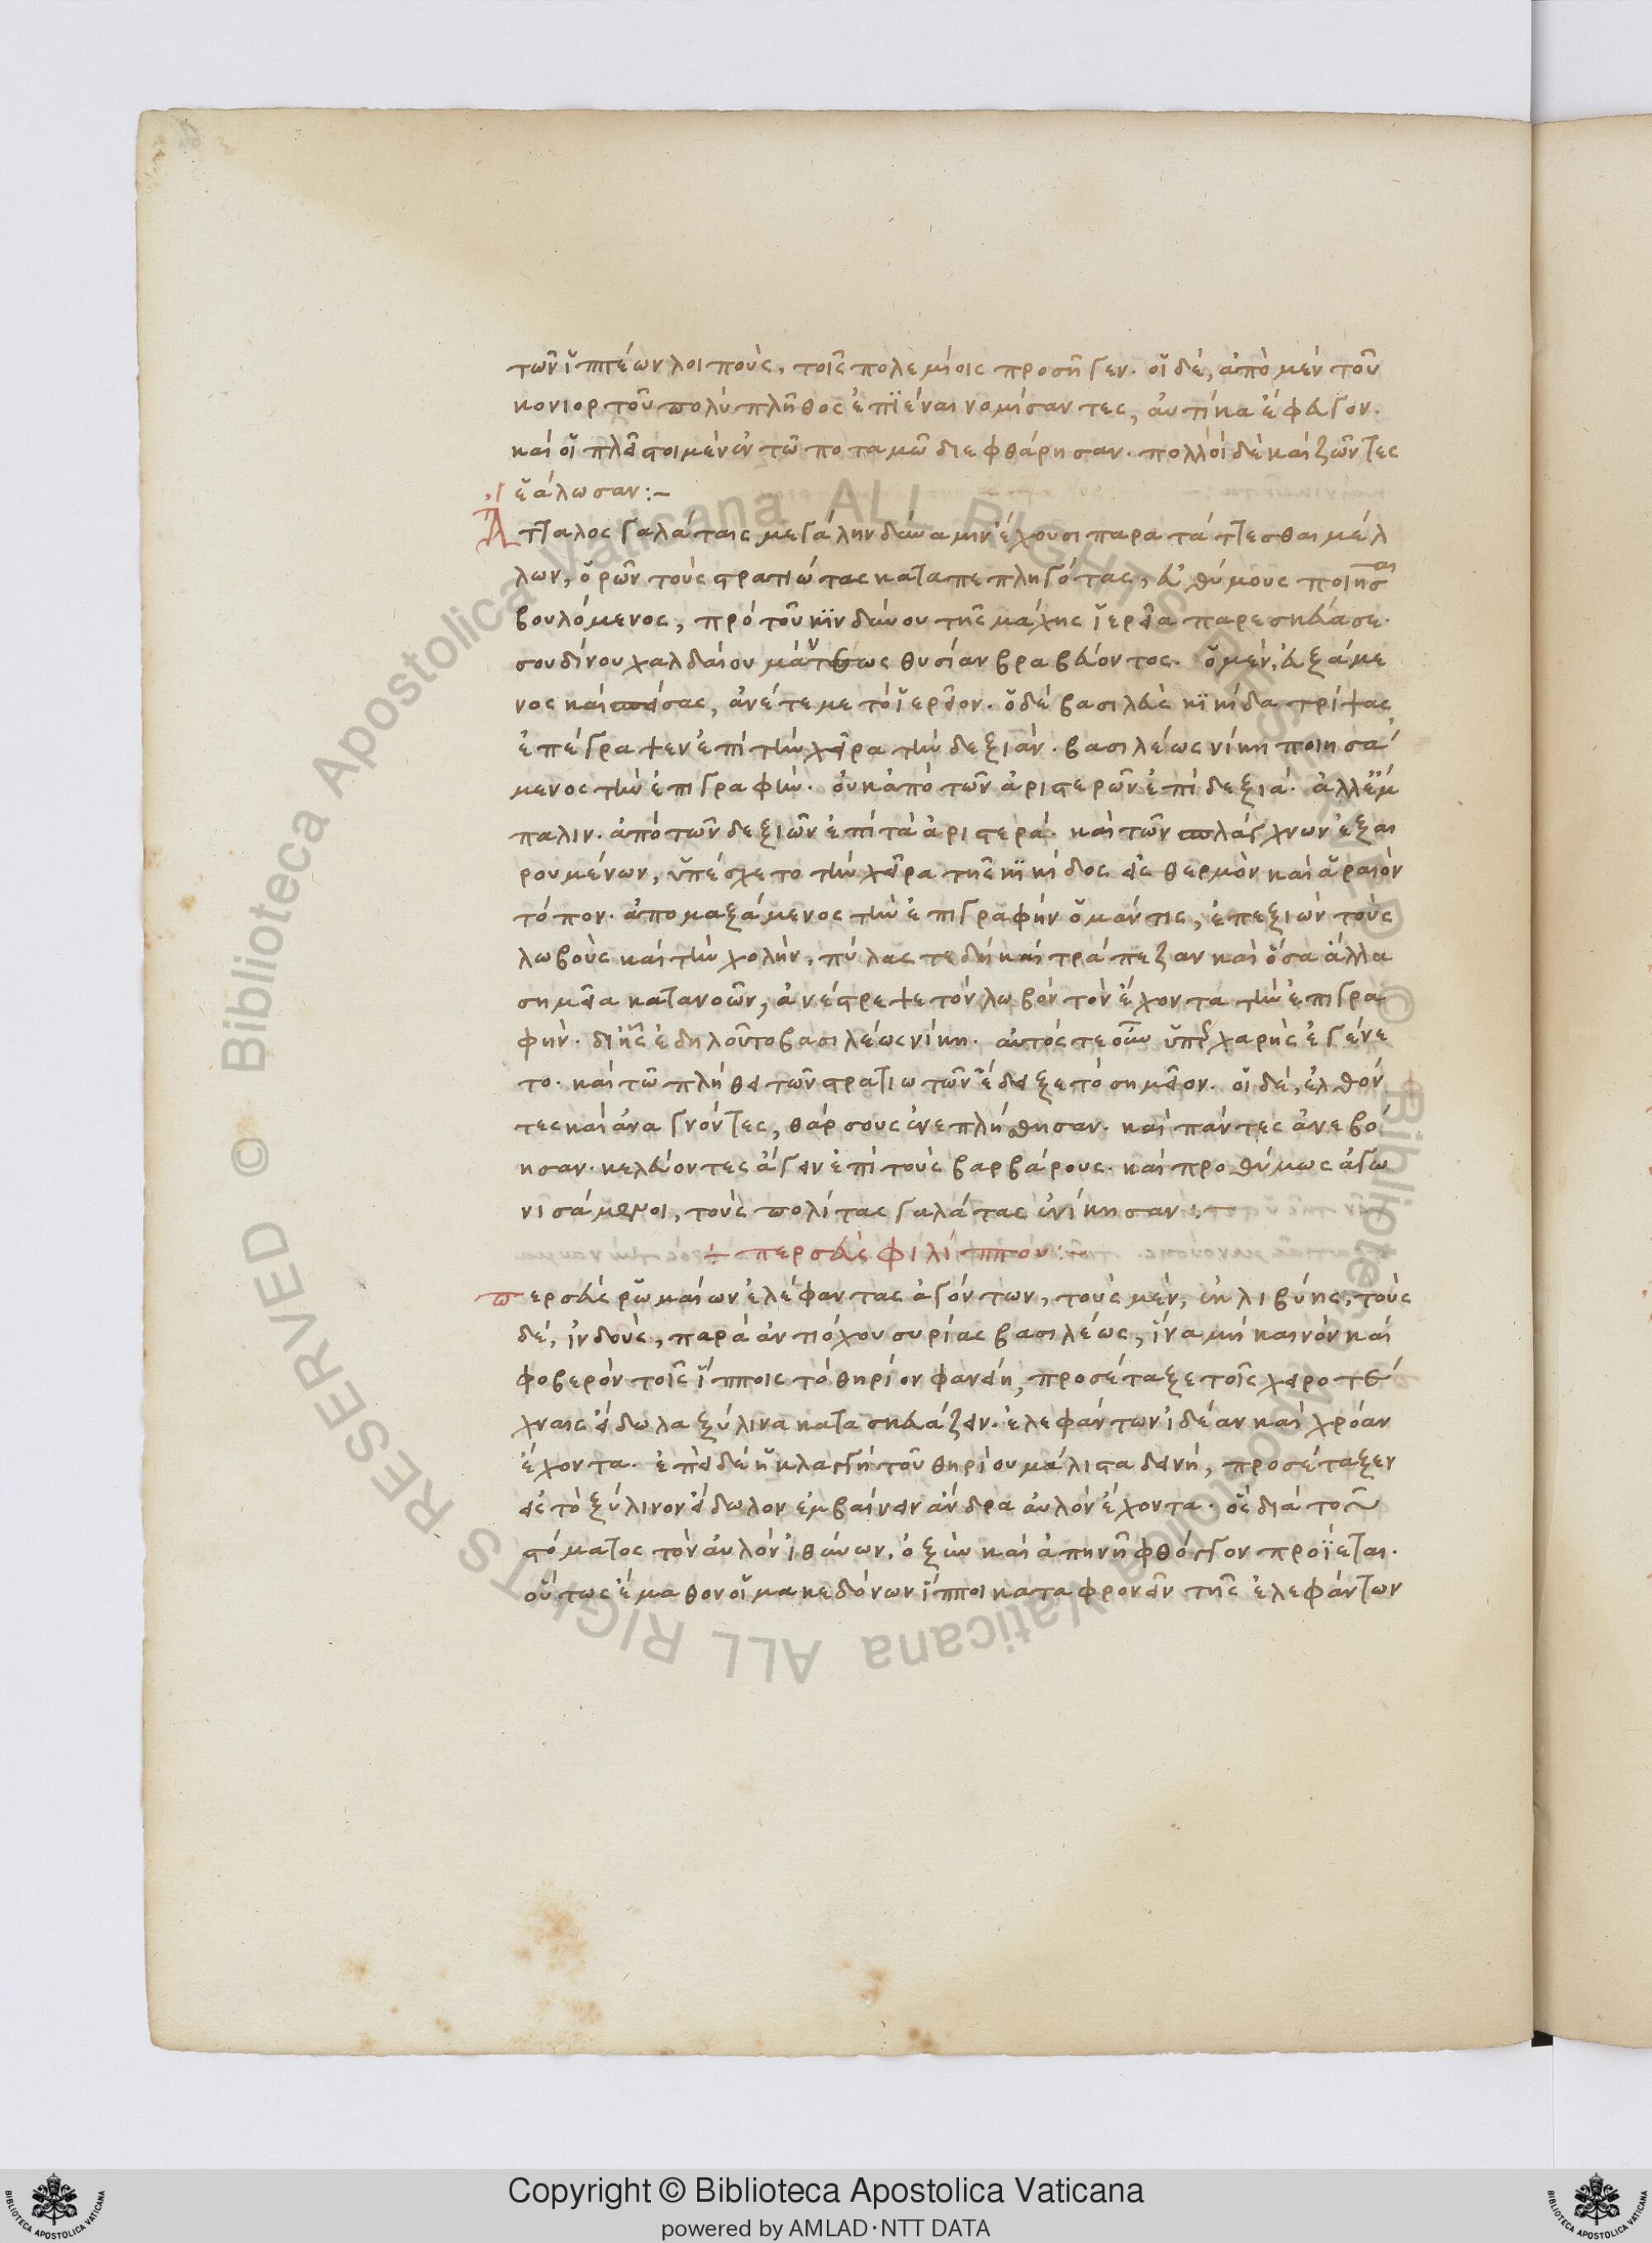 τῶν ἱππέων λοιποὺς, τοῖς πολεμίοις προσῆγεν. οἱ δὲ, ἀπὸ μὲν τοῦ
κονιορτοῦ πολὺ πλῆθος ἐπϊέναι νομίσαντες, ἀυτίκα ἔφευγον.
καὶ οἱ πλεῖστοι μὲν ἐν τῶ ποταμῶ διεφθάρησαν. πολλοὶ δὲ καὶ ζῶντες
ἑάλωσαν :-
Ἄτταλος γαλάταις μεγάλην δύναμιν ἔχουσι παρατάττεσθαι μέλ
λων, ὁρῶν τοὺς στρατιώτας καταπεπληγότας, εὐθύμους ποιῆσαι
βουλόμενος, πρὸ τοῦ κϊνδύνου τῆς μάχης ἱερεῖα παρεσκεύασε.
σουδίνου χαλδαίου μάντεως θυσίαν βραβεύοντος. ὁ μὲν, εὐξάμε
νος καὶ σπείσας, ἀνέτεμε τὸ ἱερεῖον. ὁ δὲ βασιλεὺς κϊκίδα τρίψας
ἐπέγραψεν ἐπὶ τὴν χεῖρα τὴν δεξιὰν. βασιλέως νίκη ποιησά
μενος τὴν ἐπιγραφὴν. οὐκ ἀπὸ τῶν ἀριστερῶν ἐπὶ δεξιά. ἀλλ' ἔμ
παλιν. ἀπὸ τῶν δεξιῶν ἐπὶ τὰ ἀριστερά. καὶ τῶν σπλάγχνων ἐξαι
ρουμένων, ὑπέσχετο τὴν χεῖρα τῆς κϊκίδος εἰς θερμὸν καὶ ἀραιὸν
τόπον. ἀπομαξάμενος τὴν ἐπιγραφὴν ὁ μάντις, ἐπεξιὼν τοὺς
λωβοὺς καὶ τὴν χολὴν, πύλας τε δὴ καὶ τράπεζαν καὶ ὅσα ἄλλα
σημεῖα κατανοῶν, ἀνέστρεψε τὸν λωβὸν τὸν ἔχοντα τὴν ἐπιγρα
φὴν. δι' ἧς ἐδηλοῦτο βασιλέως νίκη. αὐτός τε οὖν ὑπερχαρὴς ἐγένε
το. καὶ τῶ πλήθει τῶν στρατιωτῶν ἔδειξε τὸ σημεῖον. οἱ δὲ, ἐλθόν
τες καὶ ἀναγνόντες, θάρσους ἐνεπλήσθησαν. καὶ πάντες ἀνεβό
ησαν. κελεύοντες ἄγειν ἐπὶ τοὺς βαρβάρους. καὶ προθύμως ἀγω
νισάμενοι, τοὺς πολίτας γαλάτας ἐνίκησαν :-
+ περσεὺς φιλίππου :-
περσεὺς ῥωμαίων ἐλέφαντας ἀγόντων, τοὺς μὲν, ἐκ λιβύης, τοὺς
δὲ, ἰνδοὺς, παρὰ ἀντιόχου συρίας βασιλέως, ἵνα μὴ καινὸν καὶ
φοβερὸν τοῖς ἵπποις τὸ θηρίον φανείη, προσέταξε τοῖς χειροτέ
χναις εἴδωλα ξύλινα κατασκευάζειν. ἐλεφάντων ἰδέαν καὶ χρόαν
ἔχοντα. ἐπεὶ δὲ ἡ κλαγγὴ τοῦ θηρίου μάλιστα δεινὴ, προσέταξεν
εἰς τὸ ξύλινον εἴδωλον ἐμβαίνειν ἄνδρα αὐλὸν ἔχοντα. ὃς διὰ τοῦ
στόματος τὸν αὐλὸν ἰθύνων, ὀξὺν καὶ ἀπηνῆ φθόγγον προΐεται.
οὕτως ἔμαθον οἱ μακεδόνων ἵπποι καταφρονεῖν τῆς ἐλεφάντων
Copyright © Biblioteca Apostolica Vaticana
powered by AMLAD·NTT DATA
© Biblioteca Apostolica Vaticana ALL RIGHTS RESERVED © Biblioteca Apostolica Vaticana ALL RIGHTS RESERVED